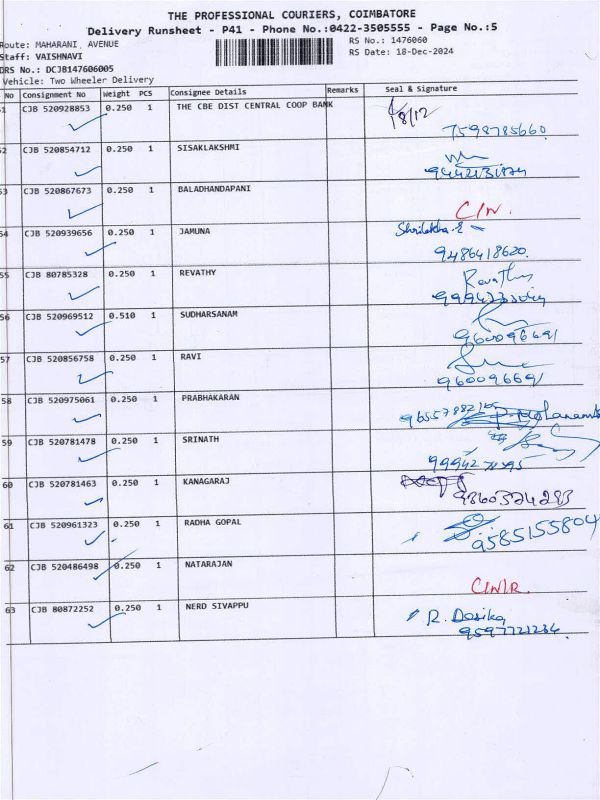 THE PROFESSIONAL COURIERS, COIMBATORE
Delivery Runsheet - P41 - Phone No.:0422-3505555 - Page No.:5
Route: MAHARANI, AVENUE
RS No.: 1476060
Staff: VAISHNAVI
RS Date: 18-Dec-2024
DRS No.: DCJB147606005
Vehicle: Two Wheeler Delivery
No Consignment No Weight PCS Consignee Details Remarks Seal & Signature
51 CJB 520928853 0.250 1 THE CBE DIST CENTRAL COOP BANK
7598785660
52 CJB 520854712 0.250 1 SISAKLAKSHMI
53 CJB 520867673 0.250 1 BALADHANDAPANI
54 CJB 520939656 0.250 1 JAMUNA
9486418620
55 CJB 80785328 0.250 1 REVATHY Revathy
56 CJB 520969512 0.510 1 SUDHARSANAM
9600096691
57 CJB 520856758 0.250 1 RAVI
960096691
58 CJB 520975061 0.250 1 PRABHAKARAN
59 CJB 520781478 0.250 1 SRINATH
60 CJB 520781463 0.250 1 KANAGARAJ
9360324293
61 CJB 520961323 0.250 1 RADHA GOPAL
9585155804
62 CJB 520486498 0.250 1 NATARAJAN
63 CJB 80872252 0.250 1 NERD SIVAPPU R. Dasika
9597721234